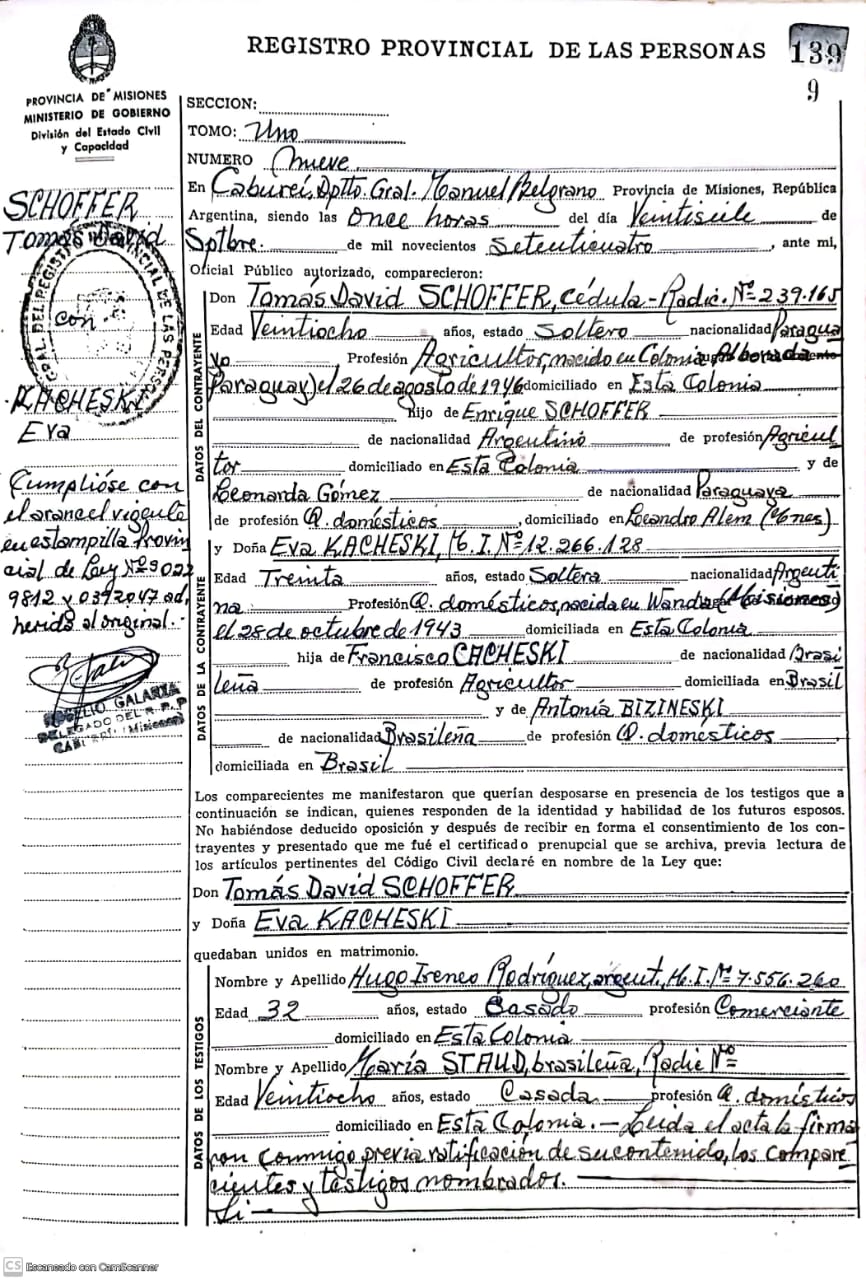 REGISTRO PROVINCIAL DE LAS PERSONAS
139
9
PROVINCIA DE MISIONES
MINISTERIO DE GOBIERNO
División del Estado Civil
y Capacidad
SCHOFFER
Tomás David
con
KACHESKI
Eva
Cumplióse con
el arancel vigente
en estampilla Provin
cial de Ley Nº 9022
9812 y 0392047 ad,
herida al original.-
ROGELIO GALARZA
DELEGADO DEL R. P. P
(Misiones)
SECCION:
TOMO: Uno
NUMERO Nueve
En Caburei, Dptto. Gral. Manuel Belgrano Provincia de Misiones, República
Argentina, siendo las once horas del día Veintisiete de
Sptbre. de mil novecientos Setenticuatro, ante mi,
Oficial Público autorizado, comparecieron:
DATOS DEL CONTRAYENTE
Don Tomás David SCHOFFER, Cédula-Radic. Nº 239.165
Edad Veintiocho años, estado Soltero nacionalidad Paragua
yo Profesión Agricultor, nacido en Colonia Alborada
Paraguay) el 26 de agosto de 1946 domiciliado en Esta Colonia
Hijo de Enrique SCHOFFER
de nacionalidad Argentino de profesión Agricul
tor domiciliado en Esta Colonia y de
Leonarda Gómez de nacionalidad Paraguaya
de profesión Q. domésticos, domiciliado en Leandro Alem (Mnes)
DATOS DE LA CONTRAYENTE
y Doña Eva KACHESKI, M. I. Nº 12.266.128
Edad Treinta años, estado Soltera nacionalidad Argenti
na Profesión Q. domésticos, nacida en Wanda (Misiones)
el 28 de octubre de 1943 domiciliada en Esta Colonia
hija de Francisco CACHESKI de nacionalidad Brasi
leña de profesión Agricultor domiciliada en Brasil
y de Antonia BIZINESKI
de nacionalidad Brasileña de profesión Q. domésticos
domiciliada en Brasil
Los comparecientes me manifestaron que querían desposarse en presencia de los testigos que a
continuación se indican, quienes responden de la identidad y habilidad de los futuros esposos.
No habiéndose deducido oposición y después de recibir en forma el consentimiento de los con-
trayentes y presentado que me fué el certificado prenupcial que se archiva, previa lectura de
los artículos pertinentes del Código Civil declaré en nombre de la Ley que:
Don Tomás David SCHOFFER
y Doña Eva KACHESKI
quedaban unidos en matrimonio.
DATOS DE LOS TESTIGOS
Nombre y Apellido Hugo Ireneo Rodríguez, argent., M. I. Nº 7.556.260
Edad 32 años, estado Casado profesión Comerciante
domiciliado en Esta Colonia
Nombre y Apellido María STAUD, brasileña, Radic Nº
Edad Veintiocho años, estado Casada profesión Q. domésticos
domiciliado en Esta Colonia.- Leida el acta la firma
ron conmigo previa ratificación de su contenido, los compare-
cientes y testigos nombrados.
CS Escaneado con CamScanner